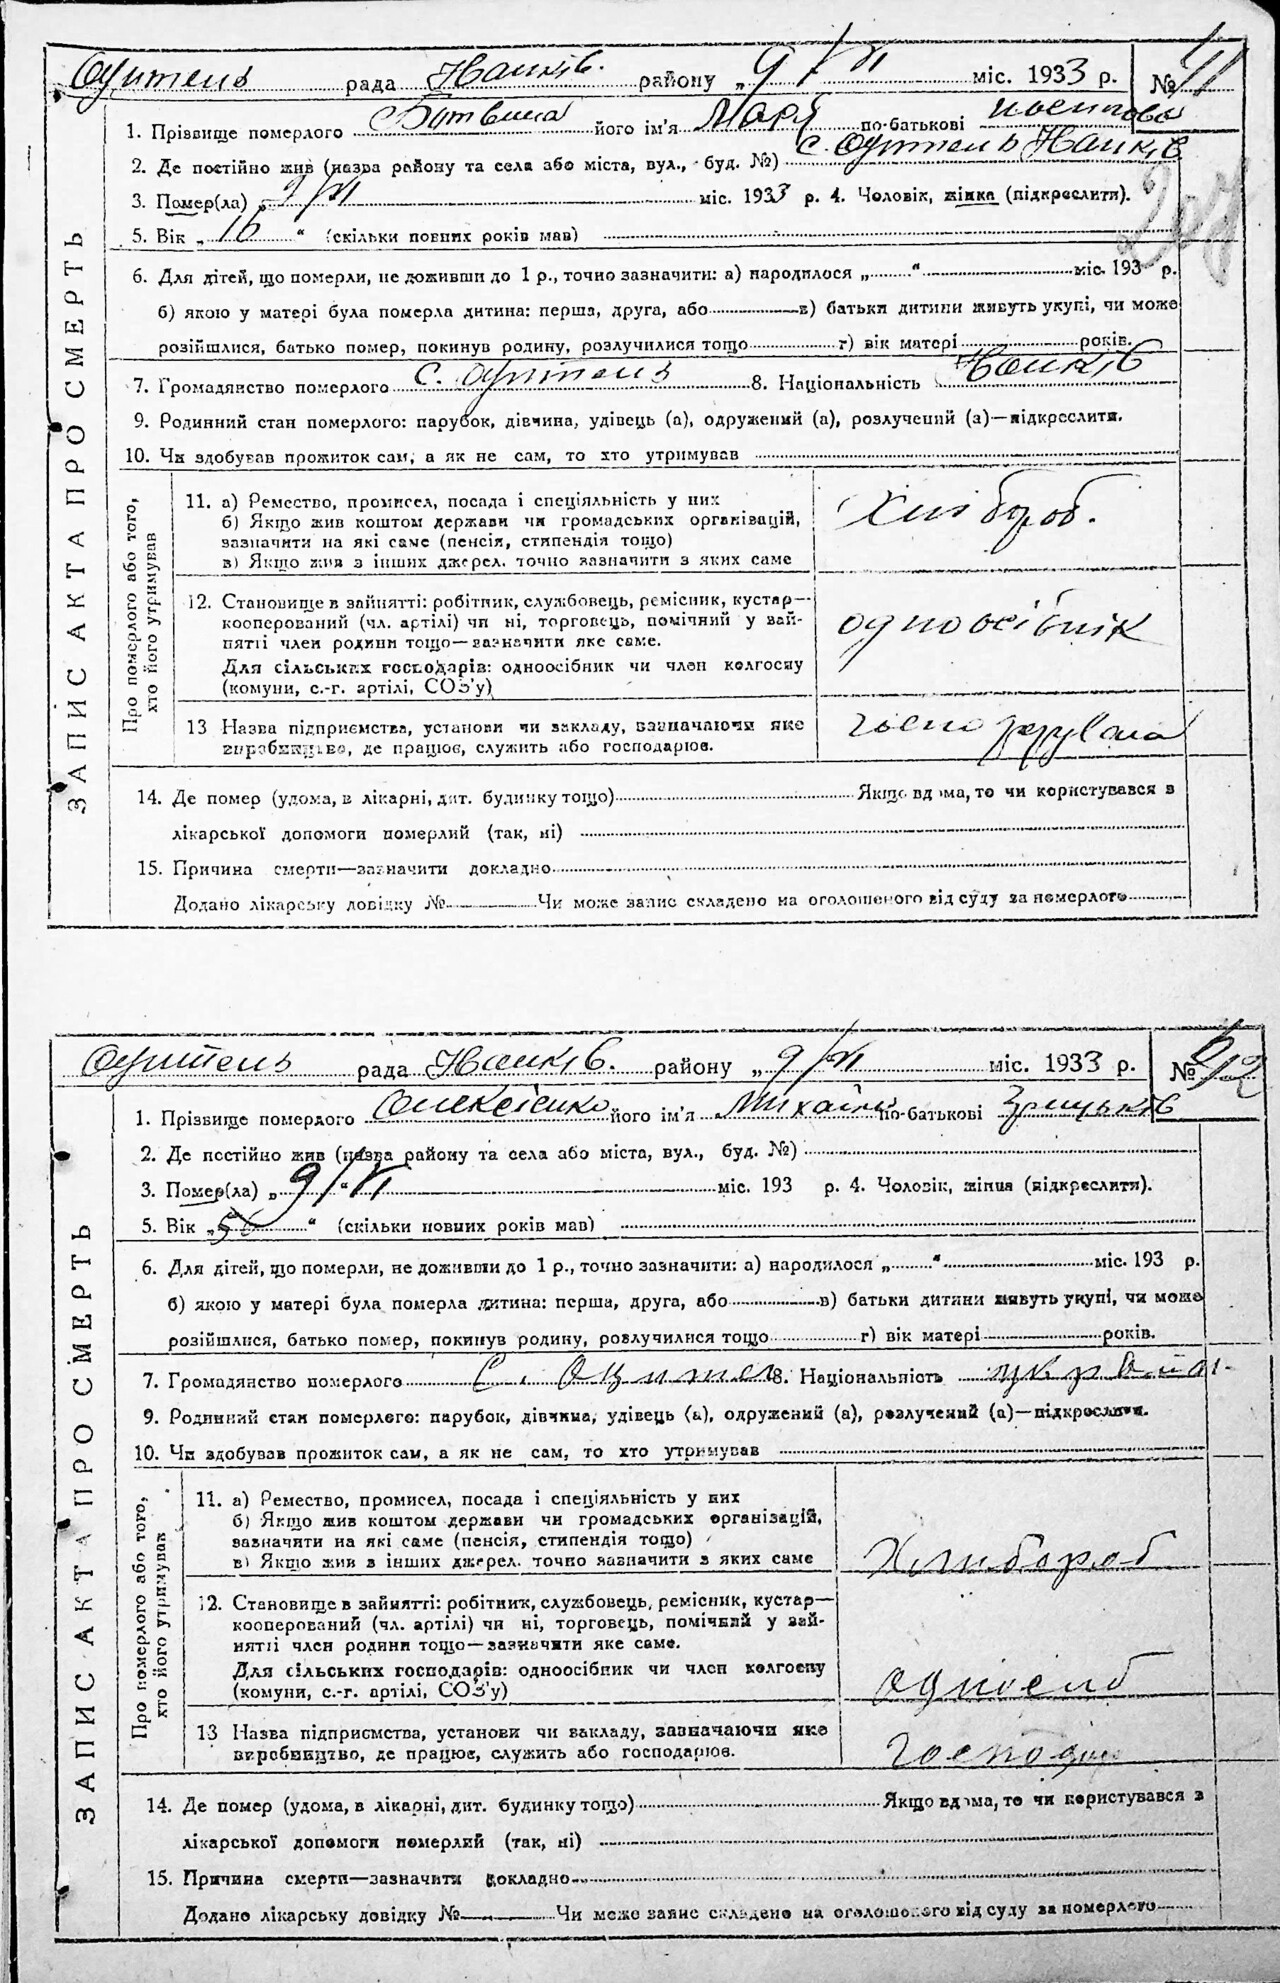 рада Іванків. району „ 9/VI міс. 1933 р. № 11
1. Прізвище померлого Ботвина його ім'я Марія по-батькові
2. Де постійно жив (назва району та села або міста, вул., буд. №) с. Іванків
3. Помер(ла) „ 9/VI міс. 1933 р. 4. Чоловік, жінка (підкреслити).
5. Вік „ 16 “ (скільки повних років мав)
6. Для дітей, що померли, не доживши до 1 р., точно зазначити: а) народилося „ “ міс. 193 р.
б) якою у матері була померла дитина: перша, друга, або в) батьки дитини живуть укупі, чи може
розійшлися, батько помер, покинув родину, розлучилися тощо г) вік матері років.
7. Громадянство померлого с. 8. Національність Іванків
9. Родинний стан померлого: парубок, дівчина, удівець (а), одружений (а), розлучений (а)—підкреслити.
10. Чи здобував прожиток сам, а як не сам, то хто утримував
11. а) Ремество, промисел, посада і спеціяльність у них
б) Якщо жив коштом держави чи громадських організацій,
зазначити на які саме (пенсія, стипендія тощо)
в) Якщо жив з інших джерел. точно зазначити з яких саме
Хлібороб.
12. Становище в зайнятті: робітник, службовець, ремісник, кустар—
кооперований (чл. артілі) чи ні, торговець, помічний у зай-
нятті член родини тощо—зазначити яке саме.
Для сільських господарів: одноосібник чи член колгоспу
(комуни, с.-г. артілі, СОЗ'у)
одноосібнік
13 Назва підприємства, установи чи закладу, зазначаючи яке
виробництво, де працює, служить або господарює.
господарювала
14. Де помер (удома, в лікарні, дит. будинку тощо) Якщо вдома, то чи користувався з
лікарської допомоги померлий (так, ні)
15. Причина смерти—зазначити докладно
Додано лікарську довідку № Чи може запис складено на оголошеного від суду за померлого
ЗАПИС АКТА ПРО СМЕРТЬ
Про померлого або того,
хто його утримував
207
рада Іванків. району „ 9/VI міс. 1933 р. № 12
1. Прізвище померлого Олексієнко його ім'я Михайло по-батькові Грицьків
2. Де постійно жив (назва району та села або міста, вул., буд. №)
3. Помер(ла) „ 9/VI “ міс. 193 р. 4. Чоловік, жінка (підкреслити).
5. Вік „ 56 “ (скільки повних років мав)
6. Для дітей, що померли, не доживши до 1 р., точно зазначити: а) народилося „ “ міс. 193 р.
б) якою у матері була померла дитина: перша, друга, або в) батьки дитини живуть укупі, чи може
розійшлися, батько помер, покинув родину, розлучилися тощо г) вік матері років.
7. Громадянство померлого С. 8. Національність україн
9. Родинний стан померлого: парубок, дівчина, удівець (а), одружений (а), розлучений (а)—підкреслити.
10. Чи здобував прожиток сам, а як не сам, то хто утримував
11. а) Ремество, промисел, посада і спеціяльність у них
б) Якщо жив коштом держави чи громадських організацій,
зазначити на які саме (пенсія, стипендія тощо)
в) Якщо жив з інших джерел. точно зазначити з яких саме
Хлибороб
12. Становище в зайнятті: робітник, службовець, ремісник, кустар—
кооперований (чл. артілі) чи ні, торговець, помічний у зай-
нятті член родини тощо—зазначити яке саме.
Для сільських господарів: одноосібник чи член колгоспу
(комуни, с.-г. артілі, СОЗ'у)
13 Назва підприємства, установи чи закладу, зазначаючи яке
виробництво, де працює, служить або господарює.
14. Де помер (удома, в лікарні, дит. будинку тощо) Якщо вдома, то чи користувався з
лікарської допомоги померлий (так, ні)
15. Причина смерти—зазначити докладно
Додано лікарську довідку № Чи може запис складено на оголошеного від суду за померлого
ЗАПИС АКТА ПРО СМЕРТЬ
Про померлого або того,
хто його утримував